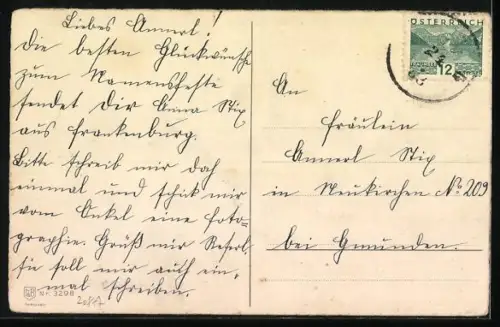 Liebes Annerl!
Die besten Glückwünsche
zum Namensfeste
sendet Dir Anna Stix
aus Frankenburg.
Bitte schreib mir doch
einmal und schik mir
vom Onkel eine foto=
graphie. Grüß mir Reserl,
sie soll mir auch ein,
mal schreiben.
Nr. 3298
ÖSTERREICH
12
An
Fräulein
Annerl Stix
in Neukirchen No 209
bei Gmunden.